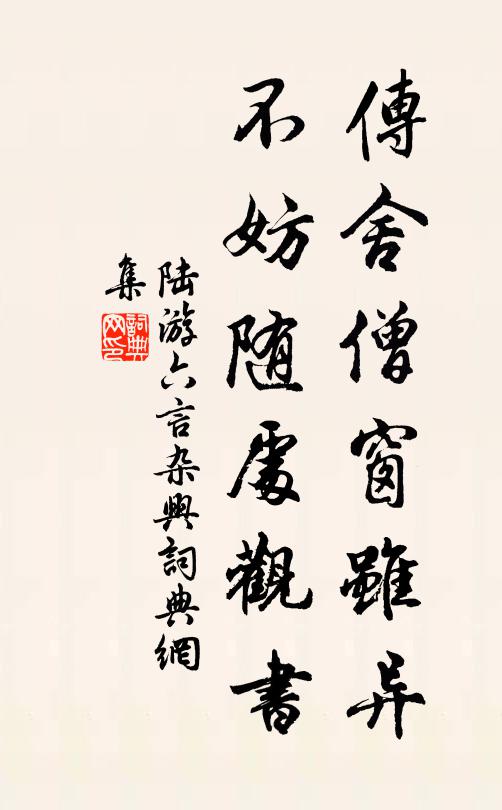 傳舍僧窗雖异
不妨随處觀書
陆游六言杂興詞典網
集
詞典
网印